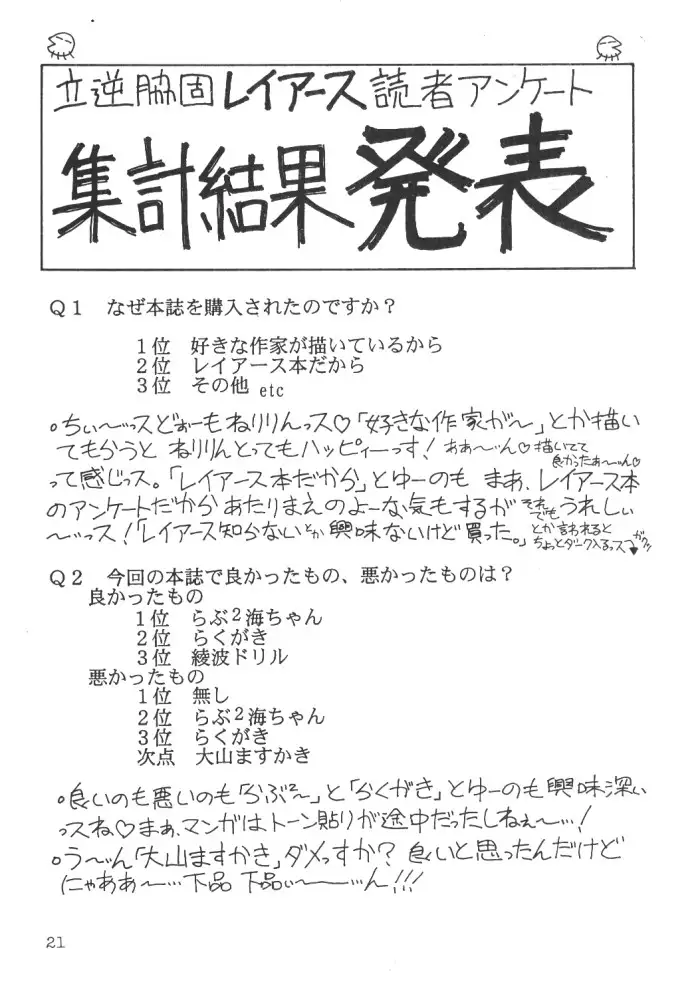 立逆脇固レイアース読者アンケート
集計結果発表
Q1 なぜ本誌を購入されたのですか?
1位 好きな作家が描いているから
2位 レイアース本だから
3位 その他 etc
・ちぃ~ッスどぉーもねりりんっス♡「好きな作家が~」とか描い
てもらうと ねりりんとってもハッピィーっす! あぁ~ん♡描いてて
良かったぁ~ん♡
って感じっス。「レイアース本だから」とゆーのも まあ、レイアース本
のアンケートだから あたりまえのよーな気もするが それでもうれしぃ
~ッス!「レイアース知らないとか興味ないけど買った。」とか言われると
ちょっとダーク入るっス
Q2 今回の本誌で良かったもの、悪かったものは?
良かったもの
1位 らぶ2海ちゃん
2位 らくがき
3位 綾波ドリル
悪かったもの
1位 無し
2位 らぶ2海ちゃん
3位 らくがき
次点 大山ますかき
・良いのも悪いのも「らぶ2~」と「らくがき」とゆーのも興味深い
ッスね♡まぁ、マンガはトーン貼りが途中だったしねぇ~…!
・う~ん「大山ますかき」ダメっすか? 良いと思ったんだけど
にゃああ~…下品 下品ぃ~…ん!!!
21